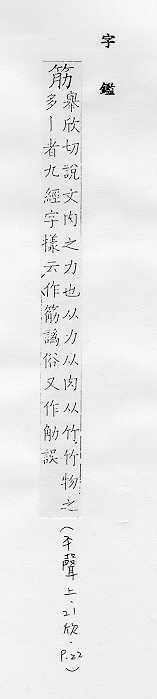 字鑑
筋
舉欣切說文肉之力也从力从肉从竹竹物之
多丨者九經字樣云作筋譌俗又作觔誤
(平聲上.21欣.P.22)